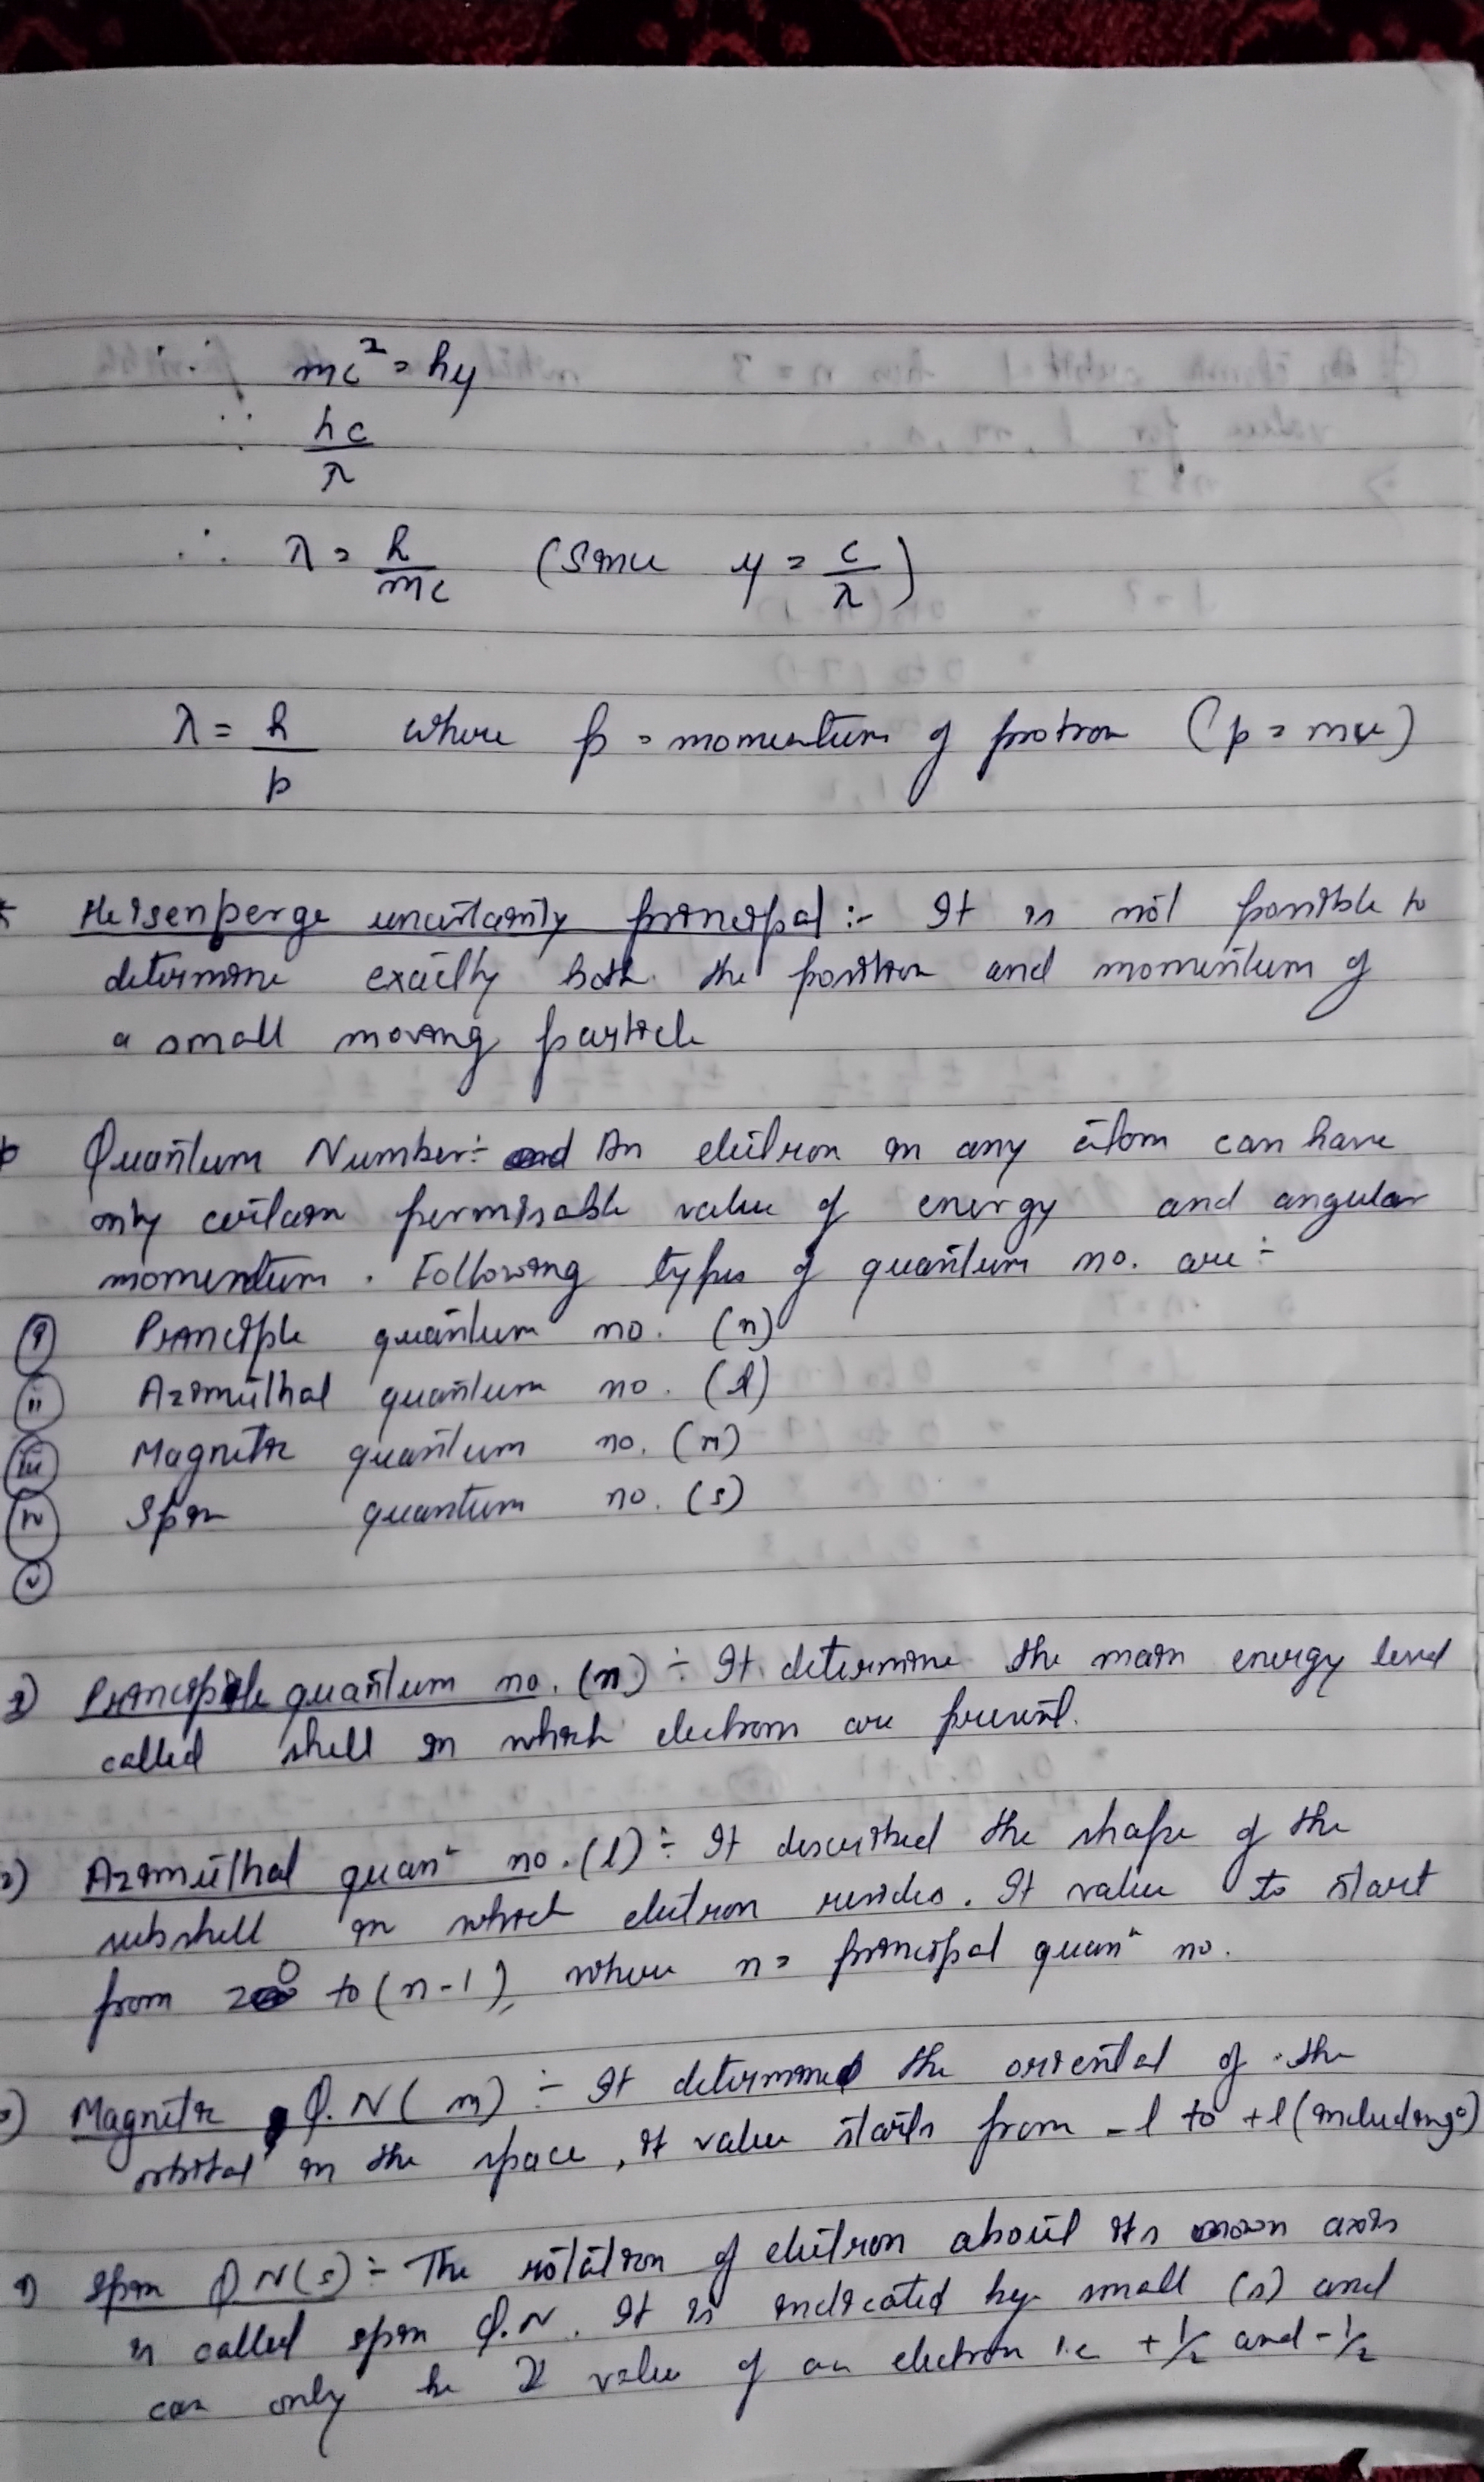 ∴ mc² = hy
∵ hc/λ
∴ λ = h/mc (Since y = c/λ)
λ = h/p where p = momentum of protron (p = mv)
Heisenperge uncertainity principal :- It is not possible to
determine exactly both the position and momentum of
a small moving particle
Quantum Number :- An electron in any atom can have
only certain permisable value of energy and angular
momentum. Following types of quantum no. are :-
(i) Principle quantum no. (n)
(ii) Azimuthal quantum no. (l)
(iii) Magnetic quantum no. (m)
(iv) Spin quantum no. (s)
(v)
1) Principle quantum no. (n) :- It determine the main energy level
called shell in which electrons are present.
2) Azimuthal quanᵗ no. (l) :- It described the shape of the
subshell in which electron resides. It value to start
from 0 to (n-1), where n = principal quanᵗ no.
3) Magnetic Q.N (m) :- It determined the oriental of the
orbital in the space, it value starts from -l to +l (including 0)
4) Spin Q N(s) :- The rotation of electron about its own axis
is called spin Q.N. It is indicated by small (s) and
can only be 2 value of an electron i.e +1/2 and -1/2